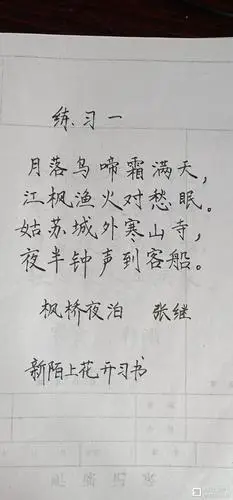 练习一
月落乌啼霜满天，
江枫渔火对愁眠。
姑苏城外寒山寺，
夜半钟声到客船。
枫桥夜泊 张继
新陌上花开习书